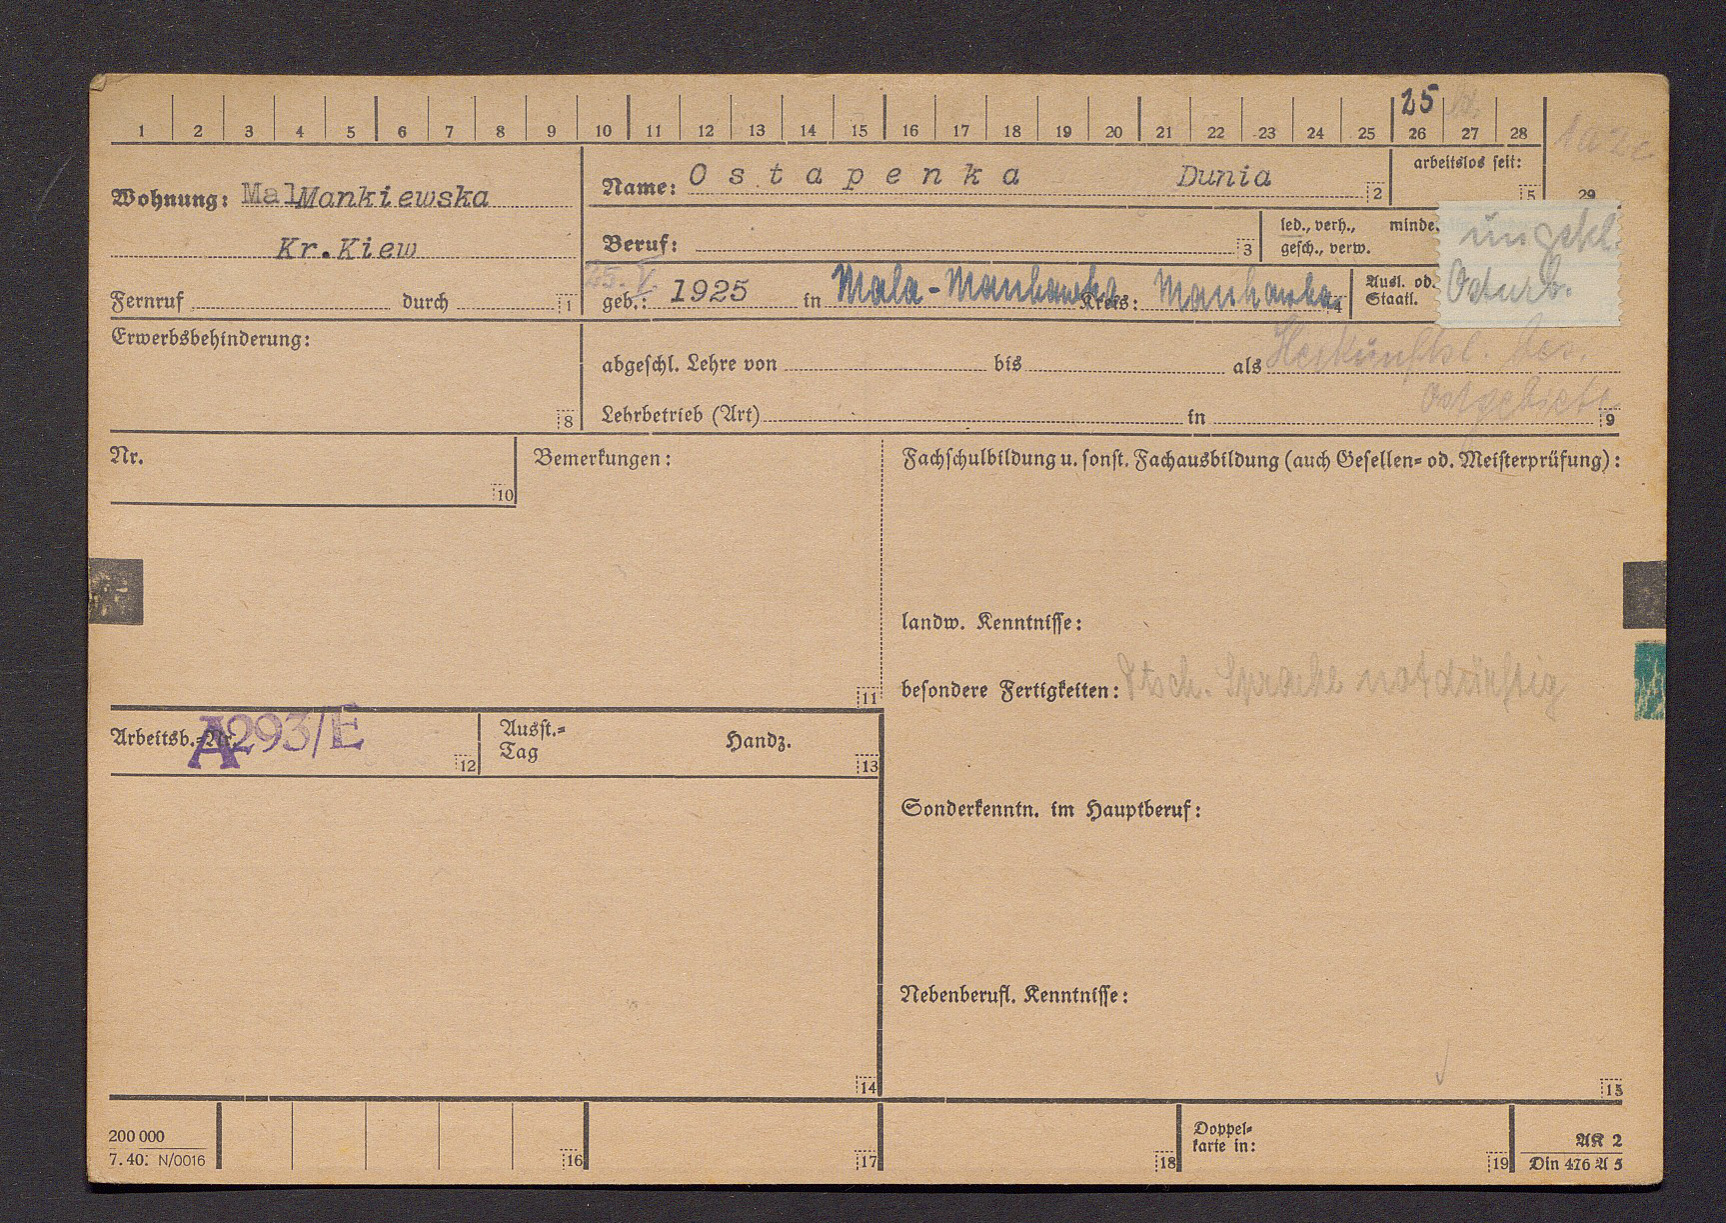 25
1 2 3 4 5 6 7 8 9 10 11 12 13 14 15 16 17 18 19 20 21 22 23 24 25 26 27 28
1a2c
29
Wohnung: Mal Mankiewska
Kr.Kiew
Fernruf durch 1
Name: Ostapenka Dunia 2
arbeitslos seit: 5
Beruf: 3
led., verh., minde
gesch., verw.
ungekl.
Osturb.
25. V geb.: 1925 in Mala-Mankawka Kreis: Mankawka 4
Ausl. od.
Staatl.
Erwerbsbehinderung:
8
abgeschl. Lehre von bis als Herkunftsl. bes.
Ostgebiete
Lehrbetrieb (Art) in 9
Nr.
10
Bemerkungen:
11
Fachschulbildung u. sonst. Fachausbildung (auch Gesellen= od. Meisterprüfung):
landw. Kenntnisse:
besondere Fertigkeiten: Dtsch. Sprache notdürftig
Arbeitsb.=Nr. A293/E 12
Ausst.=
Tag
Handz.
13
Sonderkenntn. im Hauptberuf:
Nebenberufl. Kenntnisse:
14
15
200 000
7. 40. N/0016
16
17
18
Doppel=
karte in:
19
AK 2
Din 476 A 5